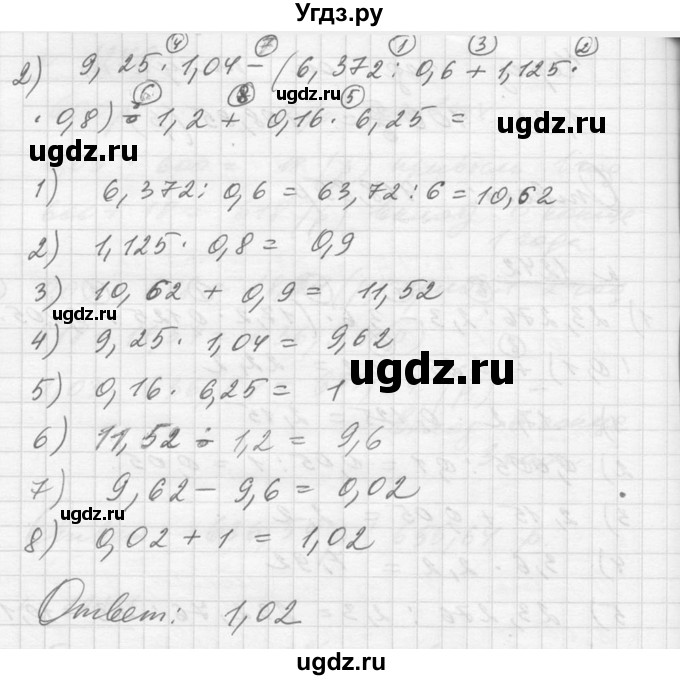 Угдз.ру
④ ⑦ ① ③ ②
2) 9,25 · 1,04 − (6,372 : 0,6 + 1,125 ·
⑥ ⑧ ⑤
· 0,8) ÷ 1,2 + 0,16 · 6,25 =
ugdz.ru
ugdz.ru
ugdz.ru
1) 6,372 : 0,6 = 63,72 : 6 = 10,62
2) 1,125 · 0,8 = 0,9
3) 10,62 + 0,9 = 11,52
ugdz.ru
4) 9,25 · 1,04 = 9,62
ugdz.ru
5) 0,16 · 6,25 = 1
6) 11,52 ÷ 1,2 = 9,6
7) 9,62 − 9,6 = 0,02
ugdz.ru
8) 0,02 + 1 = 1,02
Ответ: 1,02
ugdz.ru
ugdz.ru